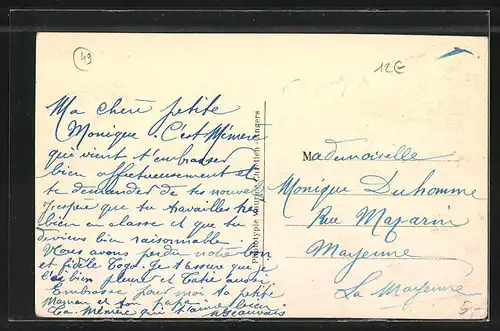 49
12E
Ma chère petite
Monique. C'est Mémère
qui vient t'embrasser
bien affectueusement et
te demander de tes nouvelles
J'espère que tu travailles très
bien en classe et que tu
deviens bien raisonnable
Nous avons perdu notre bon
et fidèle Togo. Je t'assure que je
l'ai bien pleuré et Tatie aussi
Embrasse pour moi ta petite
Maman et ton papa
Ta Mémère qui t'aime bien
Beauvais
Phototypie Chrétien - Angers
Mademoiselle
Monique Duhomme
Rue Mazarin
Mayenne
La Mayenne